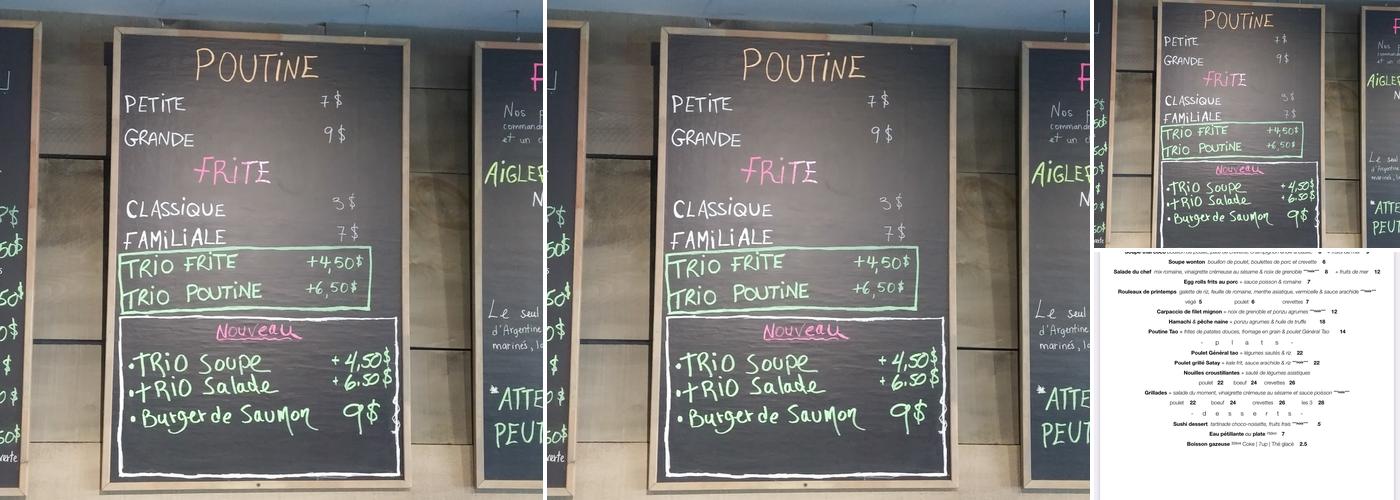 POUTINE
PETITE 7$
GRANDE 9$
FRITE
CLASSIQUE 3$
FAMILIALE 7$
TRIO FRITE +4,50$
TRIO POUTINE +6,50$
Nouveau
•TRIO Soupe +4,50$
•TRIO Salade +6.50$
•Burger de Saumon 9$
Nos
command
et un
AIGLE
N
Le seul
d'Argentine
marinés,
*ATTE
PEUT
POUTINE
PETITE 7$
GRANDE 9$
FRITE
CLASSIQUE 3$
FAMILIALE 7$
TRIO FRITE +4,50$
TRIO POUTINE +6,50$
Nouveau
•TRIO Soupe +4,50$
•TRIO Salade +6.50$
•Burger de Saumon 9$
Nos
command
et un
AIGLE
N
Le seul
d'Argentine
marinés,
*ATTE
PEUT
POUTINE
PETITE 7$
GRANDE 9$
FRITE
CLASSIQUE 3$
FAMILIALE 7$
TRIO FRITE +4,50$
TRIO POUTINE +6,50$
Nouveau
•TRIO Soupe +4,50$
•TRIO Salade +6.50$
•Burger de Saumon 9$
Nos
AIGLE
N
Le seul
d'Argentine
marinés,
*ATTE
PEUT
Soupe wonton bouillon de poulet, boulettes de porc et crevette 6
Salade du chef mix romaine, vinaigrette crémeuse au sésame & noix de grenoble 8 + fruits de mer 12
Egg rolls frits au porc + sauce poisson & romaine 7
Rouleaux de printemps galette de riz, feuille de romaine, menthe asiatique, vermicelle & sauce arachide
végé 5 poulet 6 crevettes 7
Carpaccio de filet mignon + noix de grenoble et ponzu agrumes 12
Hamachi & pêche naine + ponzu agrumes & huile de truffe 18
Poutine Tao + frites de patates douces, fromage en grain & poulet Général Tao 14
- p l a t s -
Poulet Général tao + légumes sautés & riz 22
Poulet grillé Satay + kale frit, sauce arachide & riz 22
Nouilles croustillantes + sauté de légumes asiatiques
poulet 22 boeuf 24 crevettes 26
Grillades + salade du moment, vinaigrette crémeuse au sésame et sauce poisson
poulet 22 boeuf 24 crevettes 26 les 3 28
- d e s s e r t s -
Sushi dessert tartinade choco-noisette, fruits frais 5
Eau pétillante ou plate 7
Boisson gazeuse Coke | 7up | Thé glacé 2.5